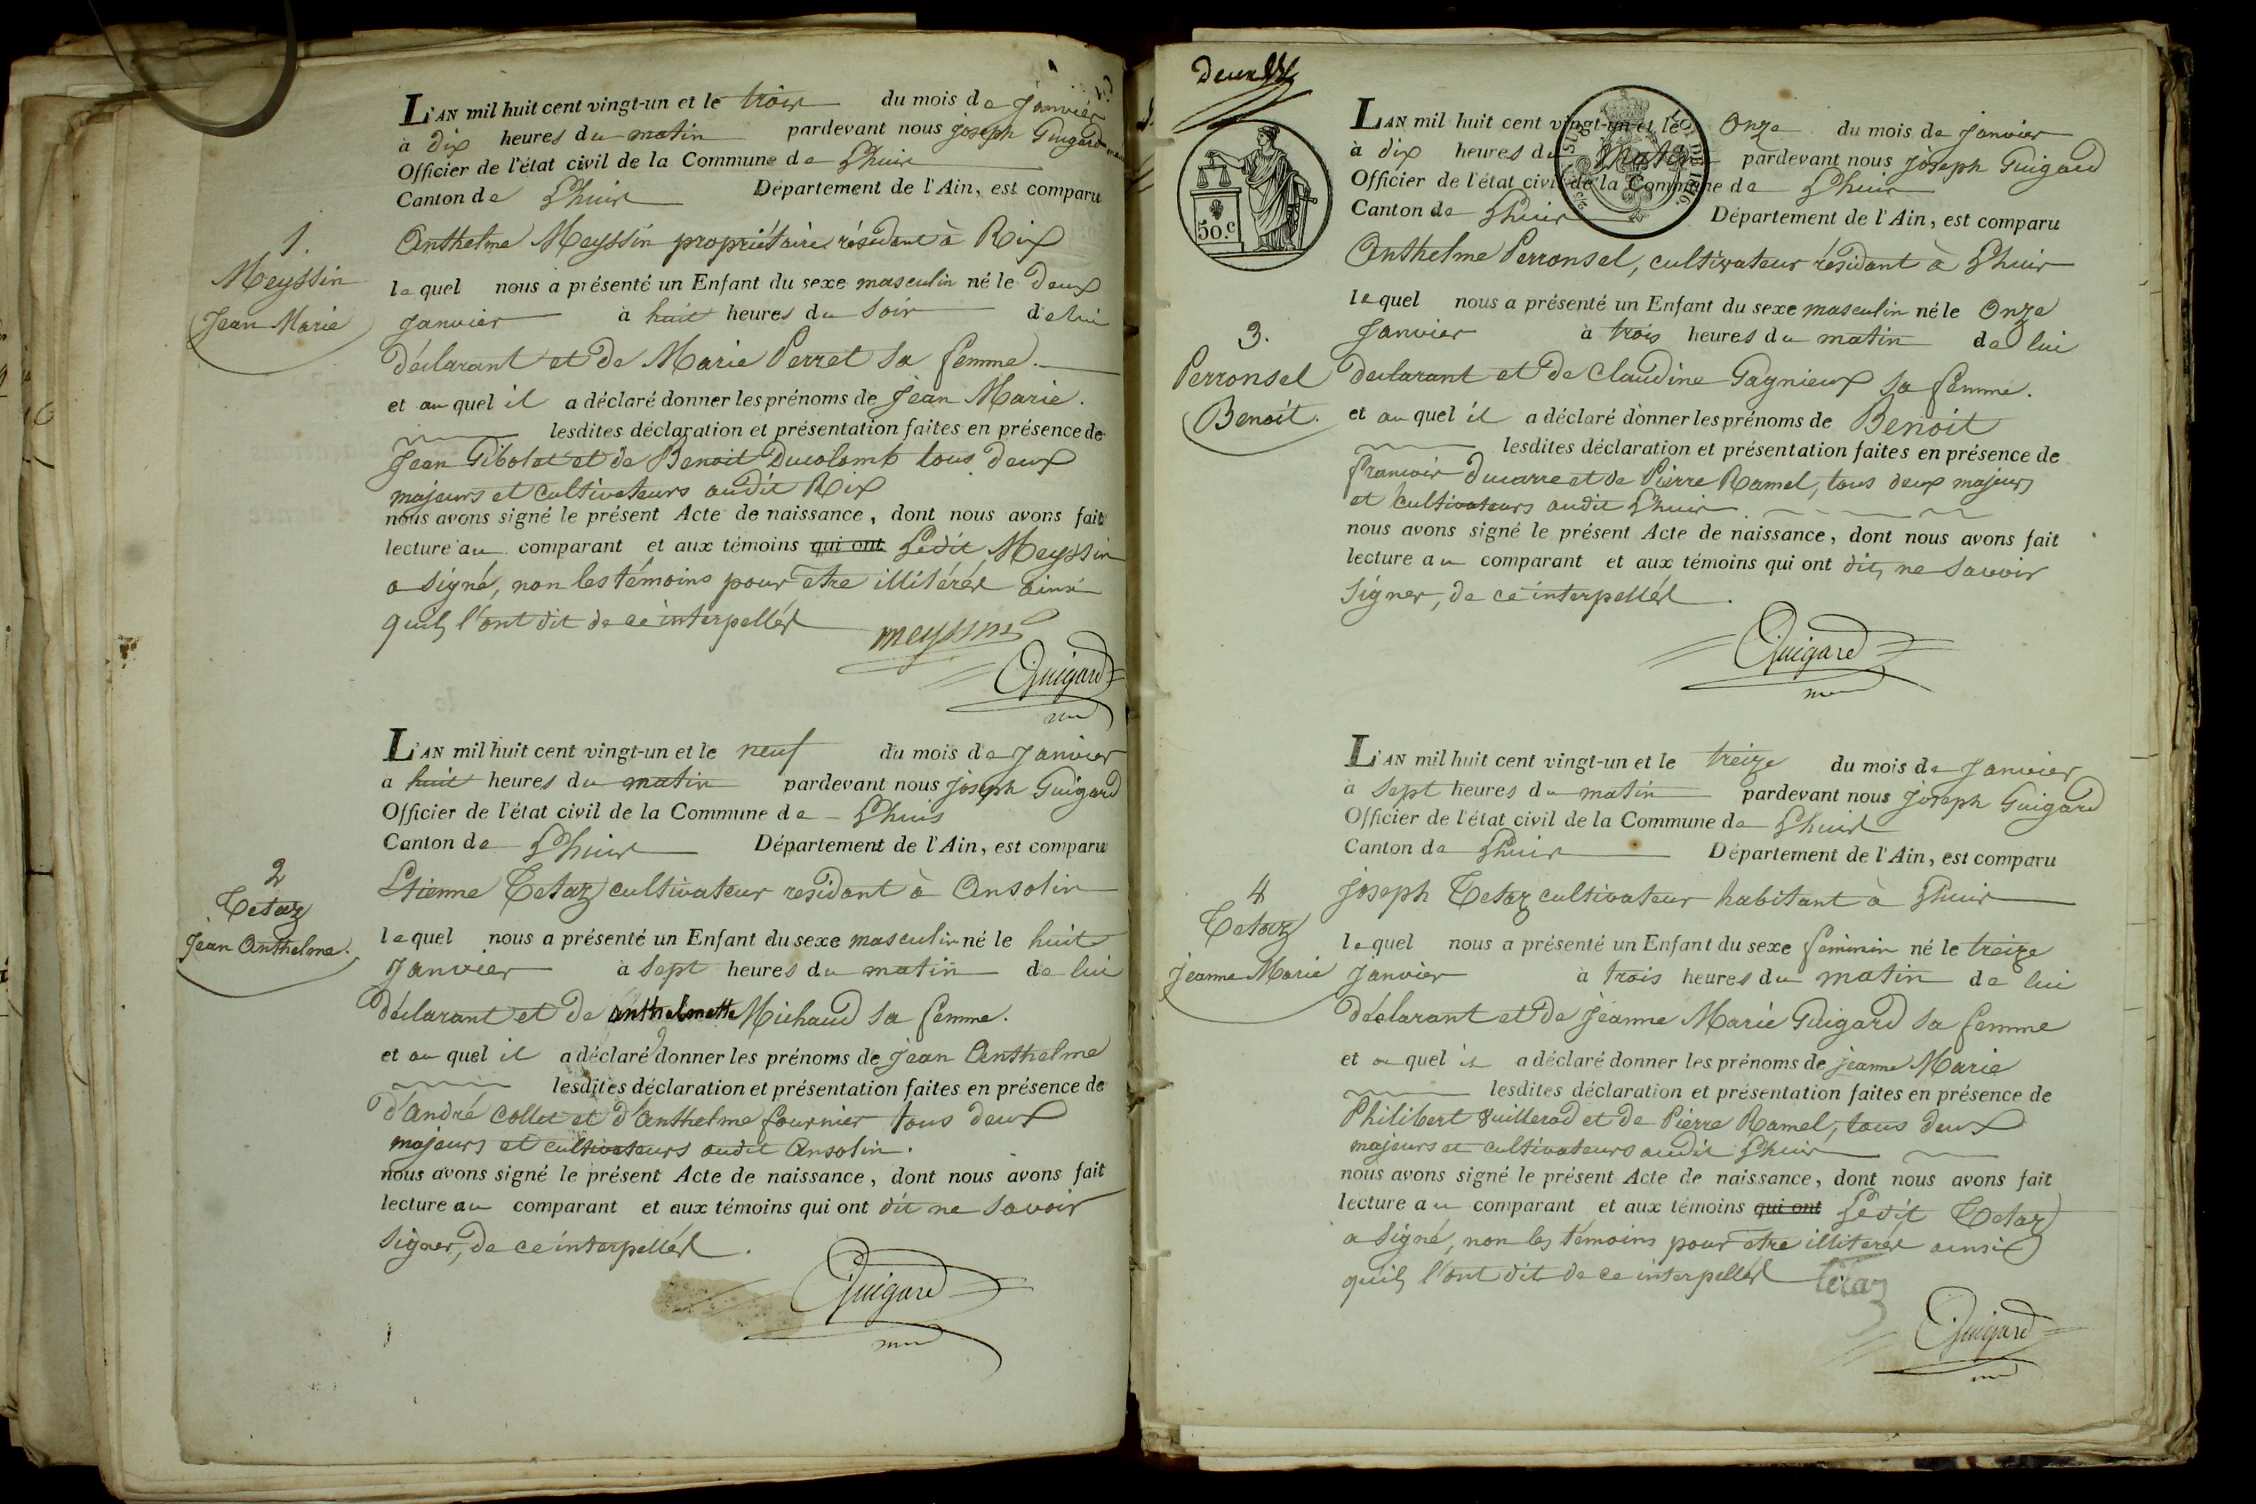 L'AN mil huit cent vingt-un et le trois du mois de Janvier
à dix heures du matin pardevant nous joseph Guigard
Officier de l'état civil de la Commune de Lhuis
Canton de Lhuis Département de l'Ain, est comparu
1.
Meyssin
Jean Marie
Anthelme Meyssin propriétaire résidant à Rix
lequel nous a présenté un Enfant du sexe masculin né le deux
Janvier à huit heures du soir de lui
déclarant et de Marie Perret sa femme.
et au quel il a déclaré donner les prénoms de Jean Marie.
lesdites déclaration et présentation faites en présence de
Jean Gibolet et de Benoit Ducolomb tous deux
majeurs et cultivateurs audit Rix
nous avons signé le présent Acte de naissance, dont nous avons fait
lecture au comparant et aux témoins qui ont Ledit Meyssin
a signé, non les témoins pour etre illitérés ainsi
quils l'ont dit de ce interpellés
meyssin
Guigard
L'AN mil huit cent vingt-un et le neuf du mois de Janvier
a huit heures du matin pardevant nous joseph Guigard
Officier de l'état civil de la Commune de Lhuis
Canton de Lhuis Département de l'Ain, est comparu
2
Tetaz
Jean Anthelme.
Etienne Tetaz cultivateur residant à Ansolin
lequel nous a présenté un Enfant du sexe masculin né le huit
Janvier à sept heures du matin de lui
déclarant et de anthelmette Michaud sa femme.
et au quel il a déclaré donner les prénoms de Jean Anthelme
lesdites déclaration et présentation faites en présence de
d'André Collet et d'Anthelme fournier tous deux
majeurs et cultivateurs audit Ansolin.
nous avons signé le présent Acte de naissance, dont nous avons fait
lecture au comparant et aux témoins qui ont dit ne savoir
signer, de ce interpellés.
Guigard
Deux
50.c
L'AN mil huit cent vingt-un et le Onze du mois de Janvier
à dix heures du matin pardevant nous joseph Guigard
Officier de l'état civil de la Commune de Lhuis
Canton de Lhuis Département de l'Ain, est comparu
Anthelme Perronsel, cultivateur résidant à Lhuis
lequel nous a présenté un Enfant du sexe masculin né le Onze
3.
Perronsel
Benoit.
Janvier à trois heures du matin de lui
declarant et de Claudine Gagnieux sa femme.
et au quel il a déclaré donner les prénoms de Benoit
lesdites déclaration et présentation faites en présence de
francois Ducarre et de Pierre Ramel, tous deux majeurs
et cultivateurs audit Lhuis.
nous avons signé le présent Acte de naissance, dont nous avons fait
lecture au comparant et aux témoins qui ont dit, ne savoir
signer, de ce interpellés.
Guigard
L'AN mil huit cent vingt-un et le treize du mois de Janvier
à sept heures du matin pardevant nous joseph Guigard
Officier de l'état civil de la Commune de Lhuis
Canton de Lhuis Département de l'Ain, est comparu
4
Tetaz
jeanne Marie
joseph Tetaz cultivateur habitant à Lhuis
lequel nous a présenté un Enfant du sexe feminin né le treize
Janvier à trois heures du matin de lui
déclarant et de jeanne Marie Guigard sa femme
et au quel il a déclaré donner les prénoms de jeanne Marie
lesdites déclaration et présentation faites en présence de
Philibert Vuillerod et de Pierre Ramel, tous deux
majeurs et cultivateurs audit Lhuis
nous avons signé le présent Acte de naissance, dont nous avons fait
lecture au comparant et aux témoins qui ont Ledit Tetaz
a signé, non les témoins pour etre illiterés ainsi
quils l'ont dit de ce interpellés
tetaz
Guigard